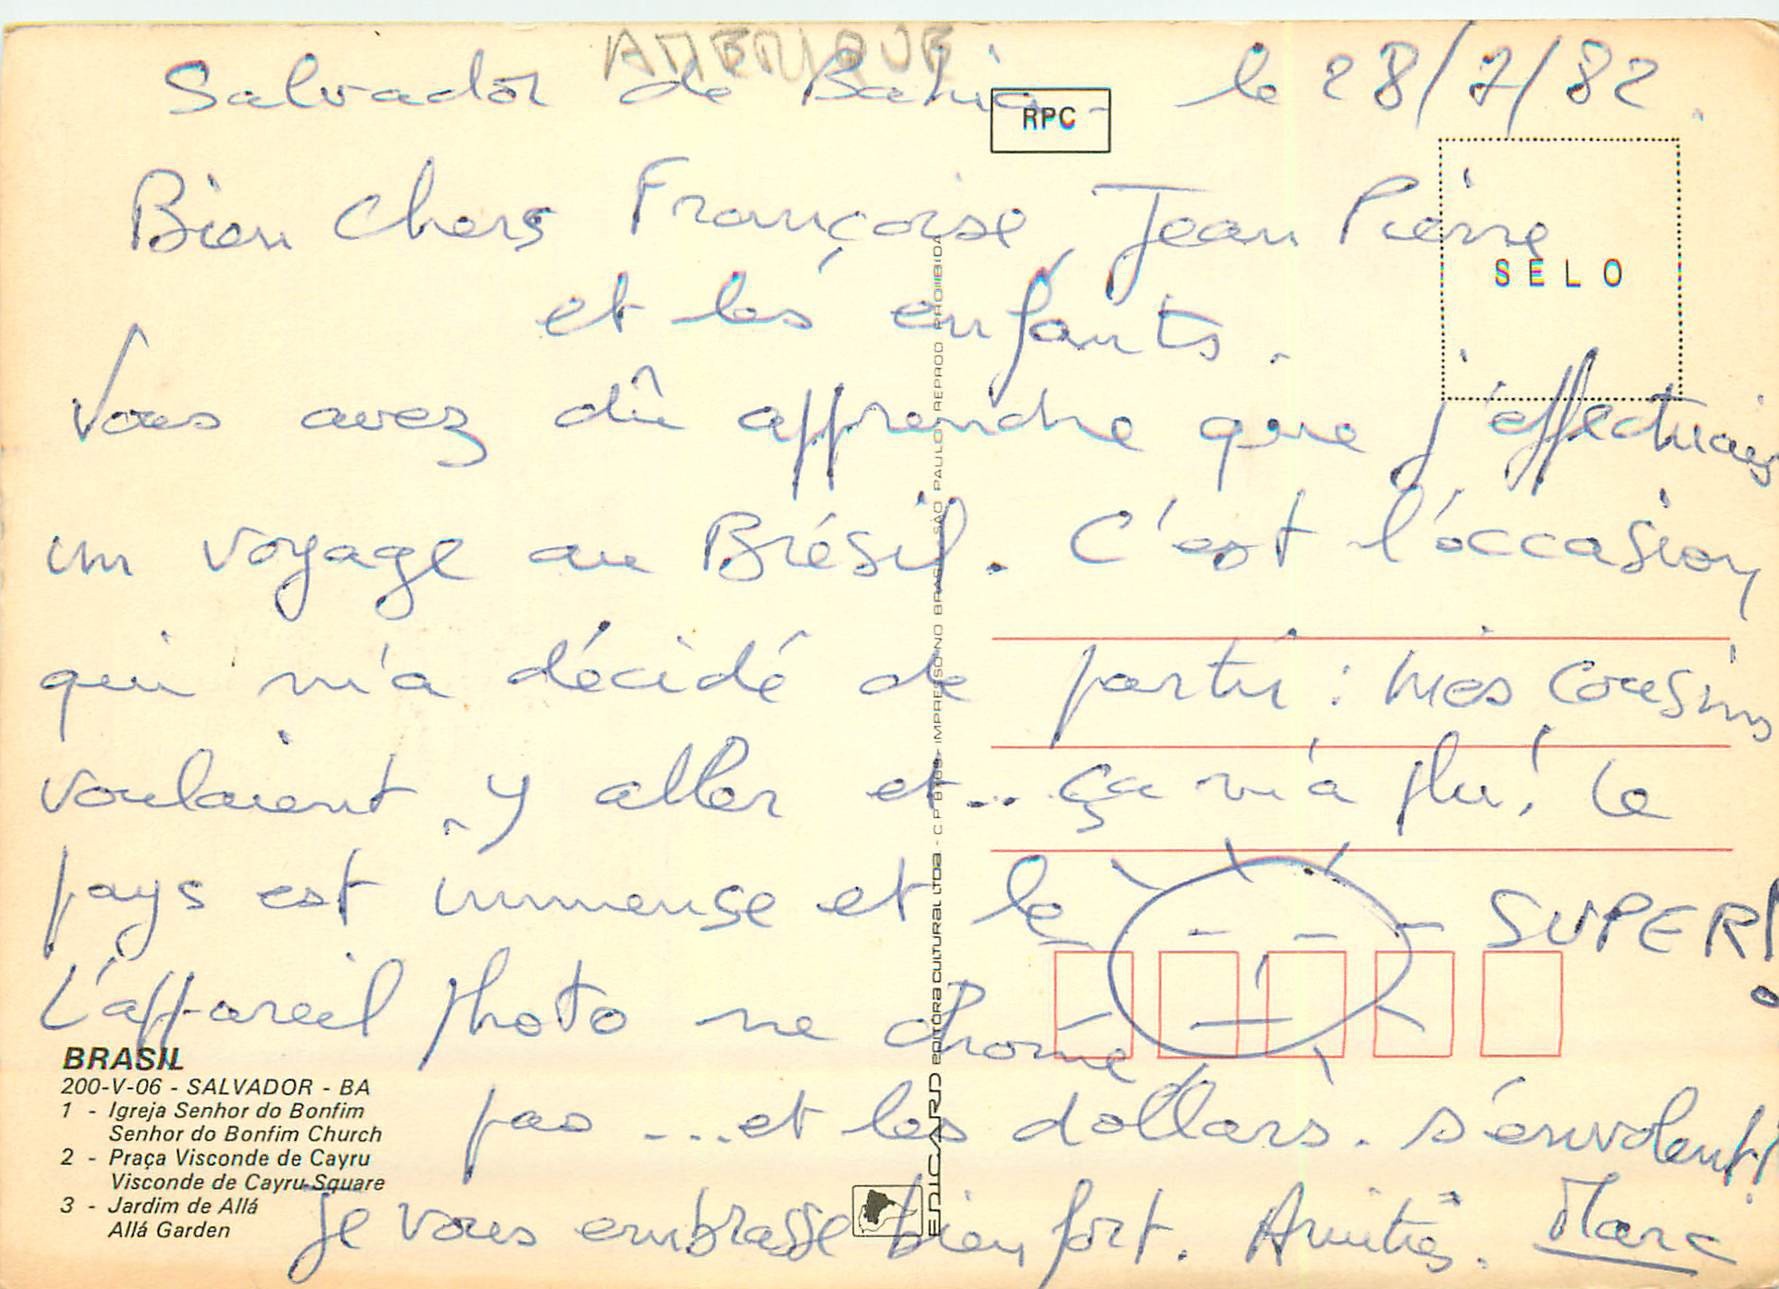 AMERIQUE
Salvador de Bahia - le 28/7/82.
RPC
Bien Chers Françoise, Jean Pierre
SELO
et les enfants.
Vous avez dû apprendre que j'effectuais
un voyage au Brésil. C'est l'occasion
qui m'a décidé de partir : mes cousins
voulaient y aller et... ça m'a plu! Le
pays est immense et le SUPER!
L'appareil photo ne chôme
pas ... et les dollars s'envolent!
Je vous embrasse bien fort. Amitiés. Marc
BRASIL
200-V-06 - SALVADOR - BA
1 - Igreja Senhor do Bonfim
Senhor do Bonfim Church
2 - Praça Visconde de Cayru
Visconde de Cayru Square
3 - Jardim de Allá
Allá Garden
EDICARD EDITÔRA CULTURAL LTDA - IMPRESSO NO BRASIL SÃO PAULO REPROD PROIBIDA